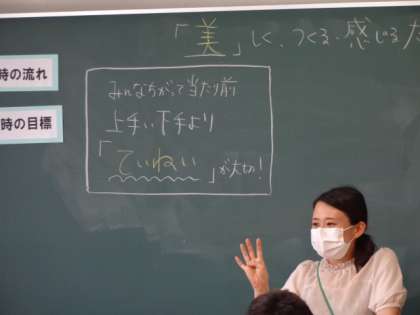 「美」しく、つくる・感じる
時の流れ
時の目標
みんなちがって当たり前
上手い下手より
「ていねい」が大切!